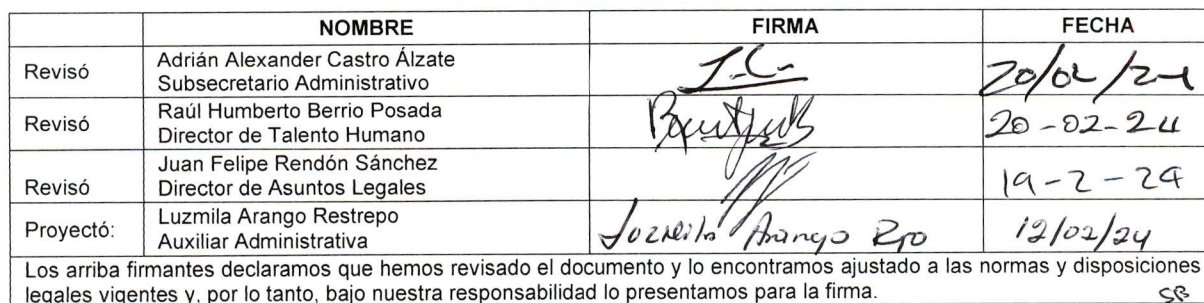 NOMBRE FIRMA FECHA
Revisó Adrián Alexander Castro Álzate
Subsecretario Administrativo 20/02/24
Revisó Raúl Humberto Berrio Posada
Director de Talento Humano 20-02-24
Revisó Juan Felipe Rendón Sánchez
Director de Asuntos Legales 19-2-24
Proyectó: Luzmila Arango Restrepo
Auxiliar Administrativa Luzmila Arango Rpo 12/02/24
Los arriba firmantes declaramos que hemos revisado el documento y lo encontramos ajustado a las normas y disposiciones
legales vigentes y, por lo tanto, bajo nuestra responsabilidad lo presentamos para la firma.